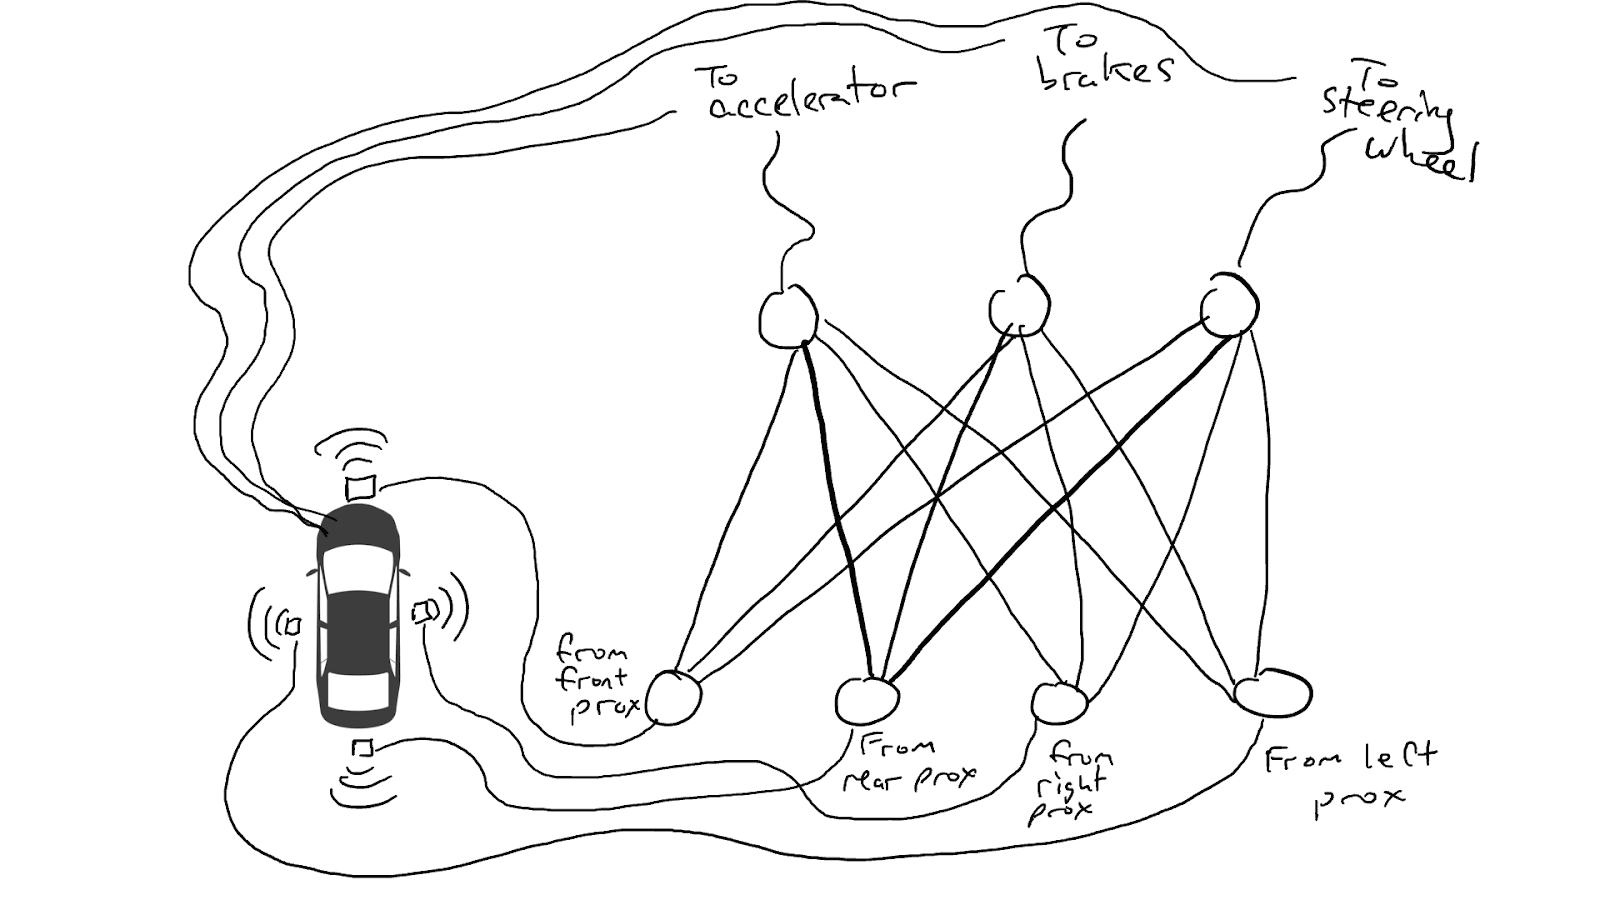 To
accelerator
To
brakes
To
steering
wheel
from
front
prox
From
rear prox
from
right
prox
From left
prox